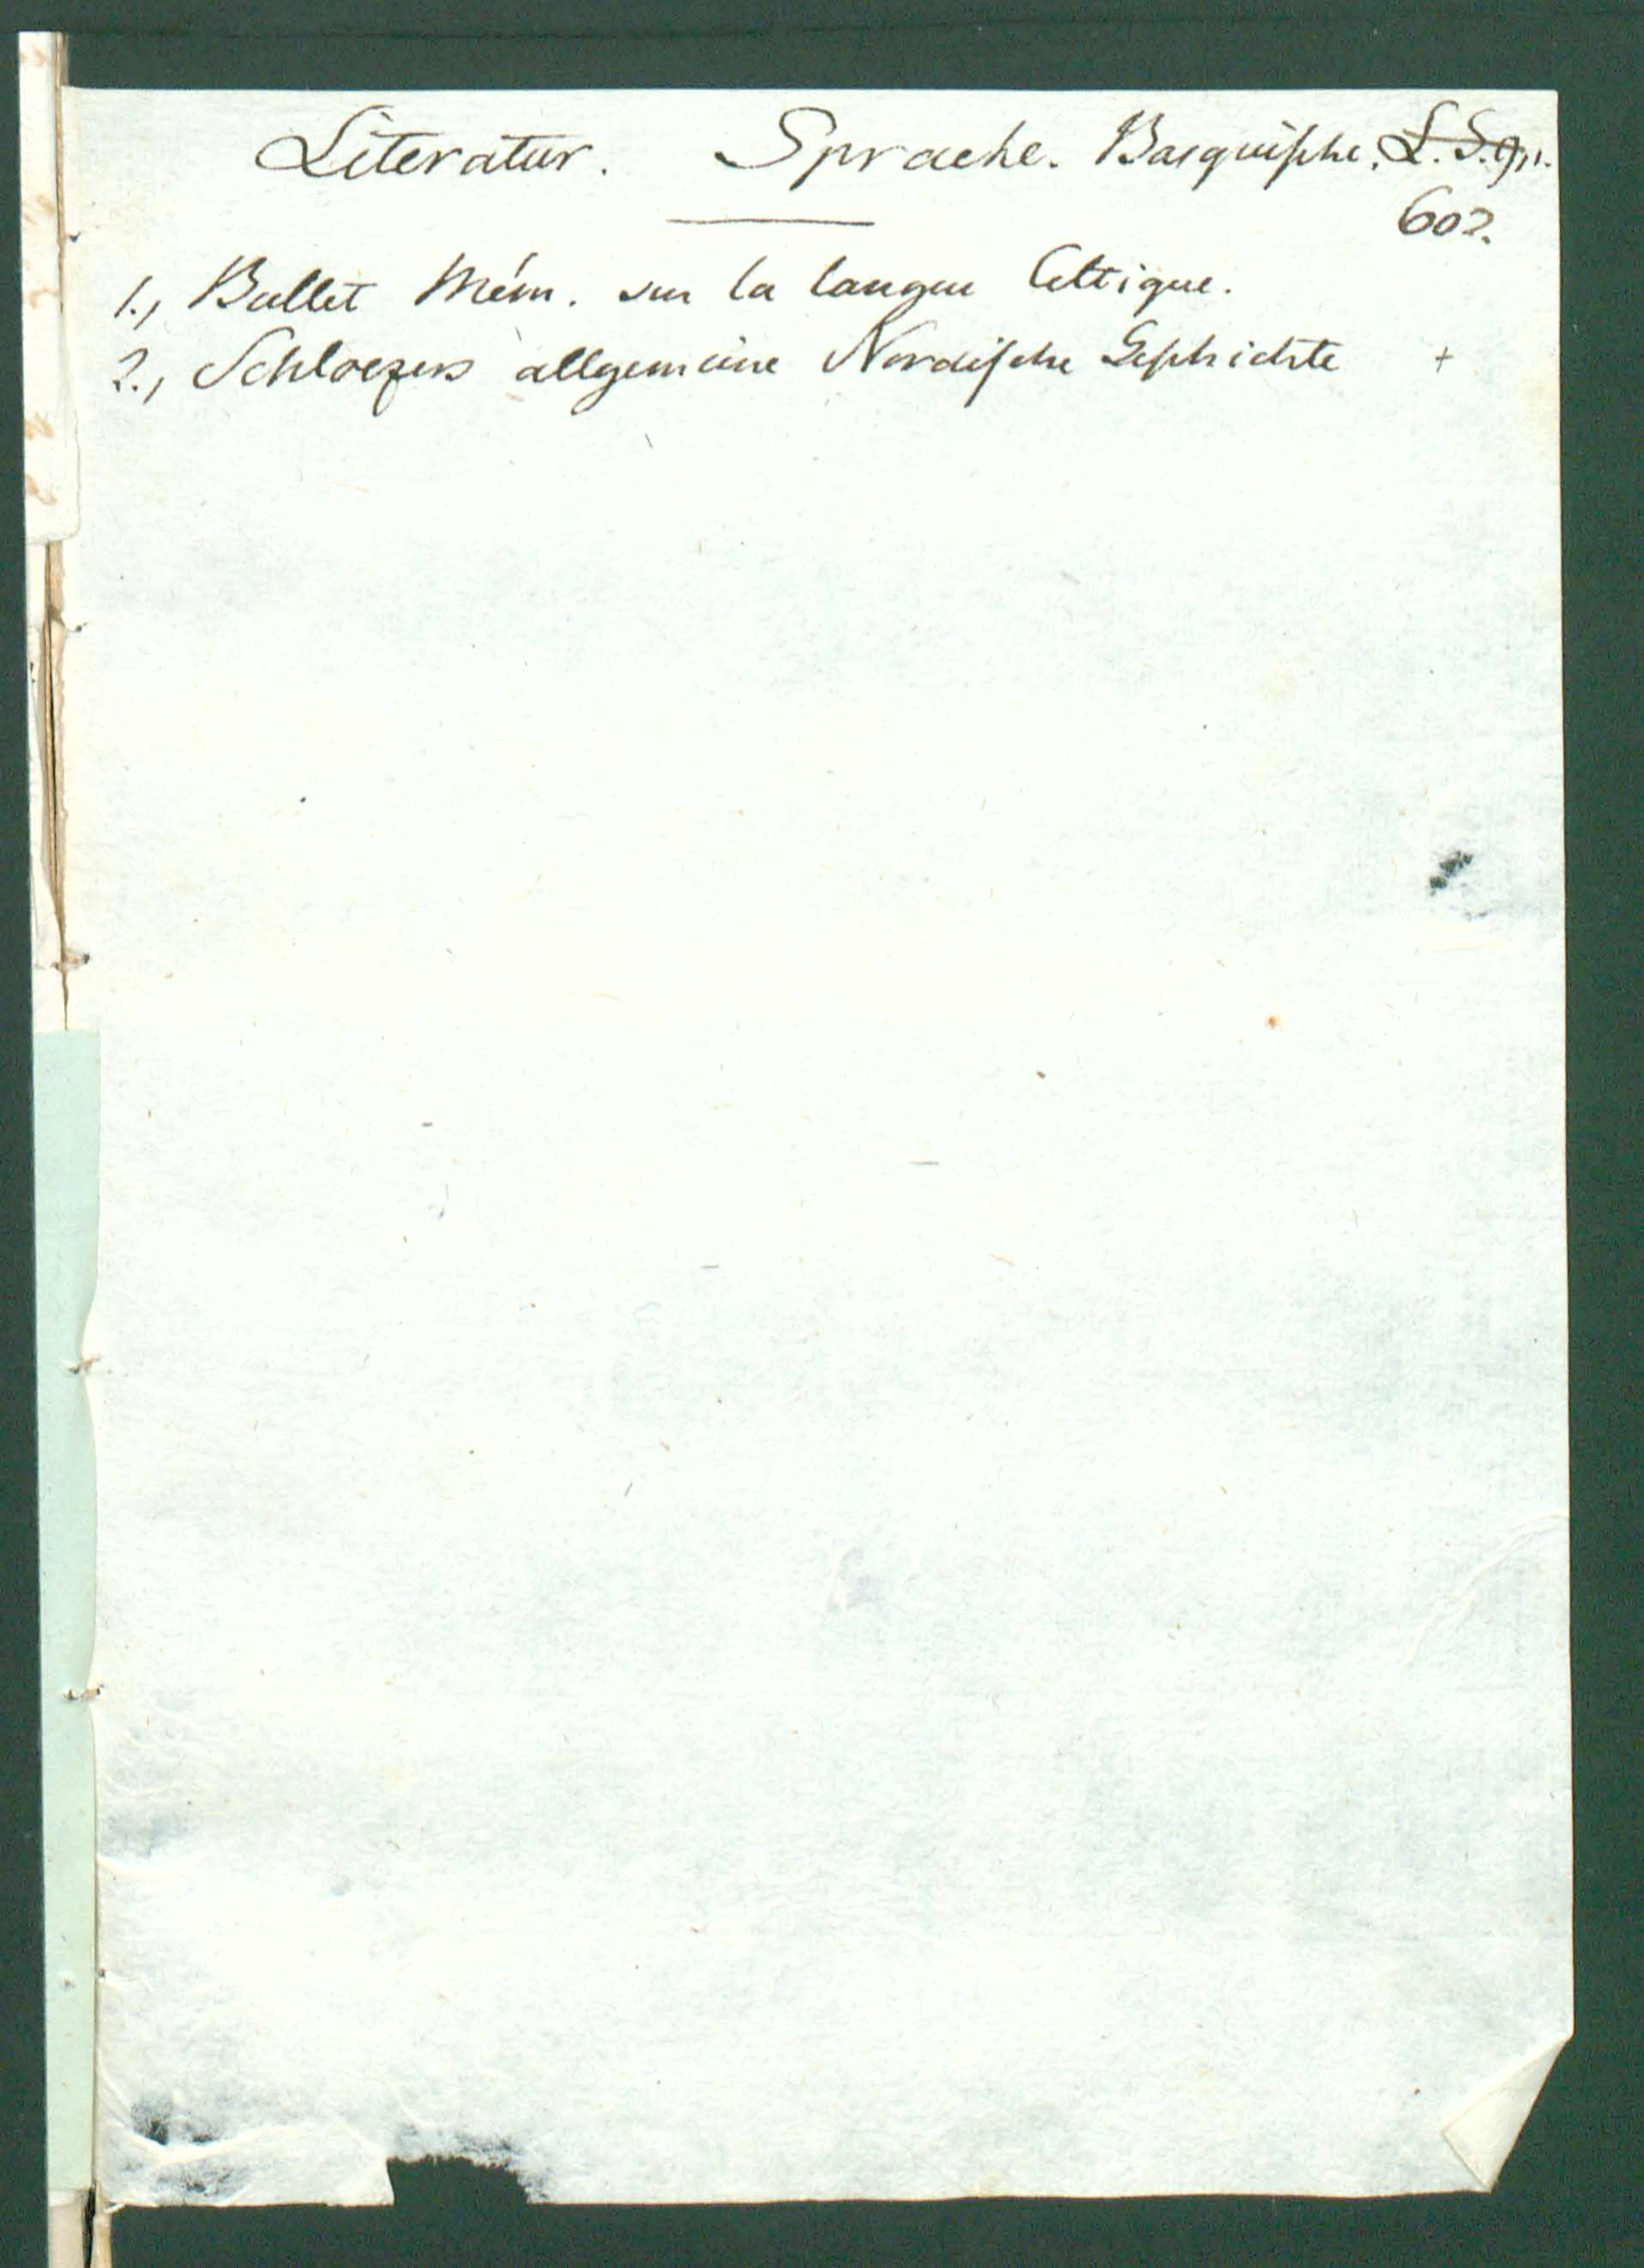 Literatur. Sprache. Basquische. L. S.
602.
1., Bullet Mém. sur la langue Celtique.
2., Schloezers allgemeine Nordische Geschichte +